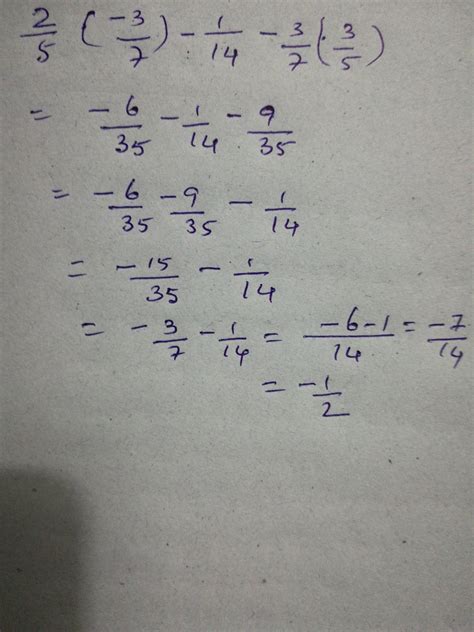 2/5 (-3/7) - 1/14 - 3/7 (3/5)
= -6/35 - 1/14 - 9/35
= -6/35 - 9/35 - 1/14
= -15/35 - 1/14
= -3/7 - 1/14 = -6-1/14 = -7/14
= -1/2